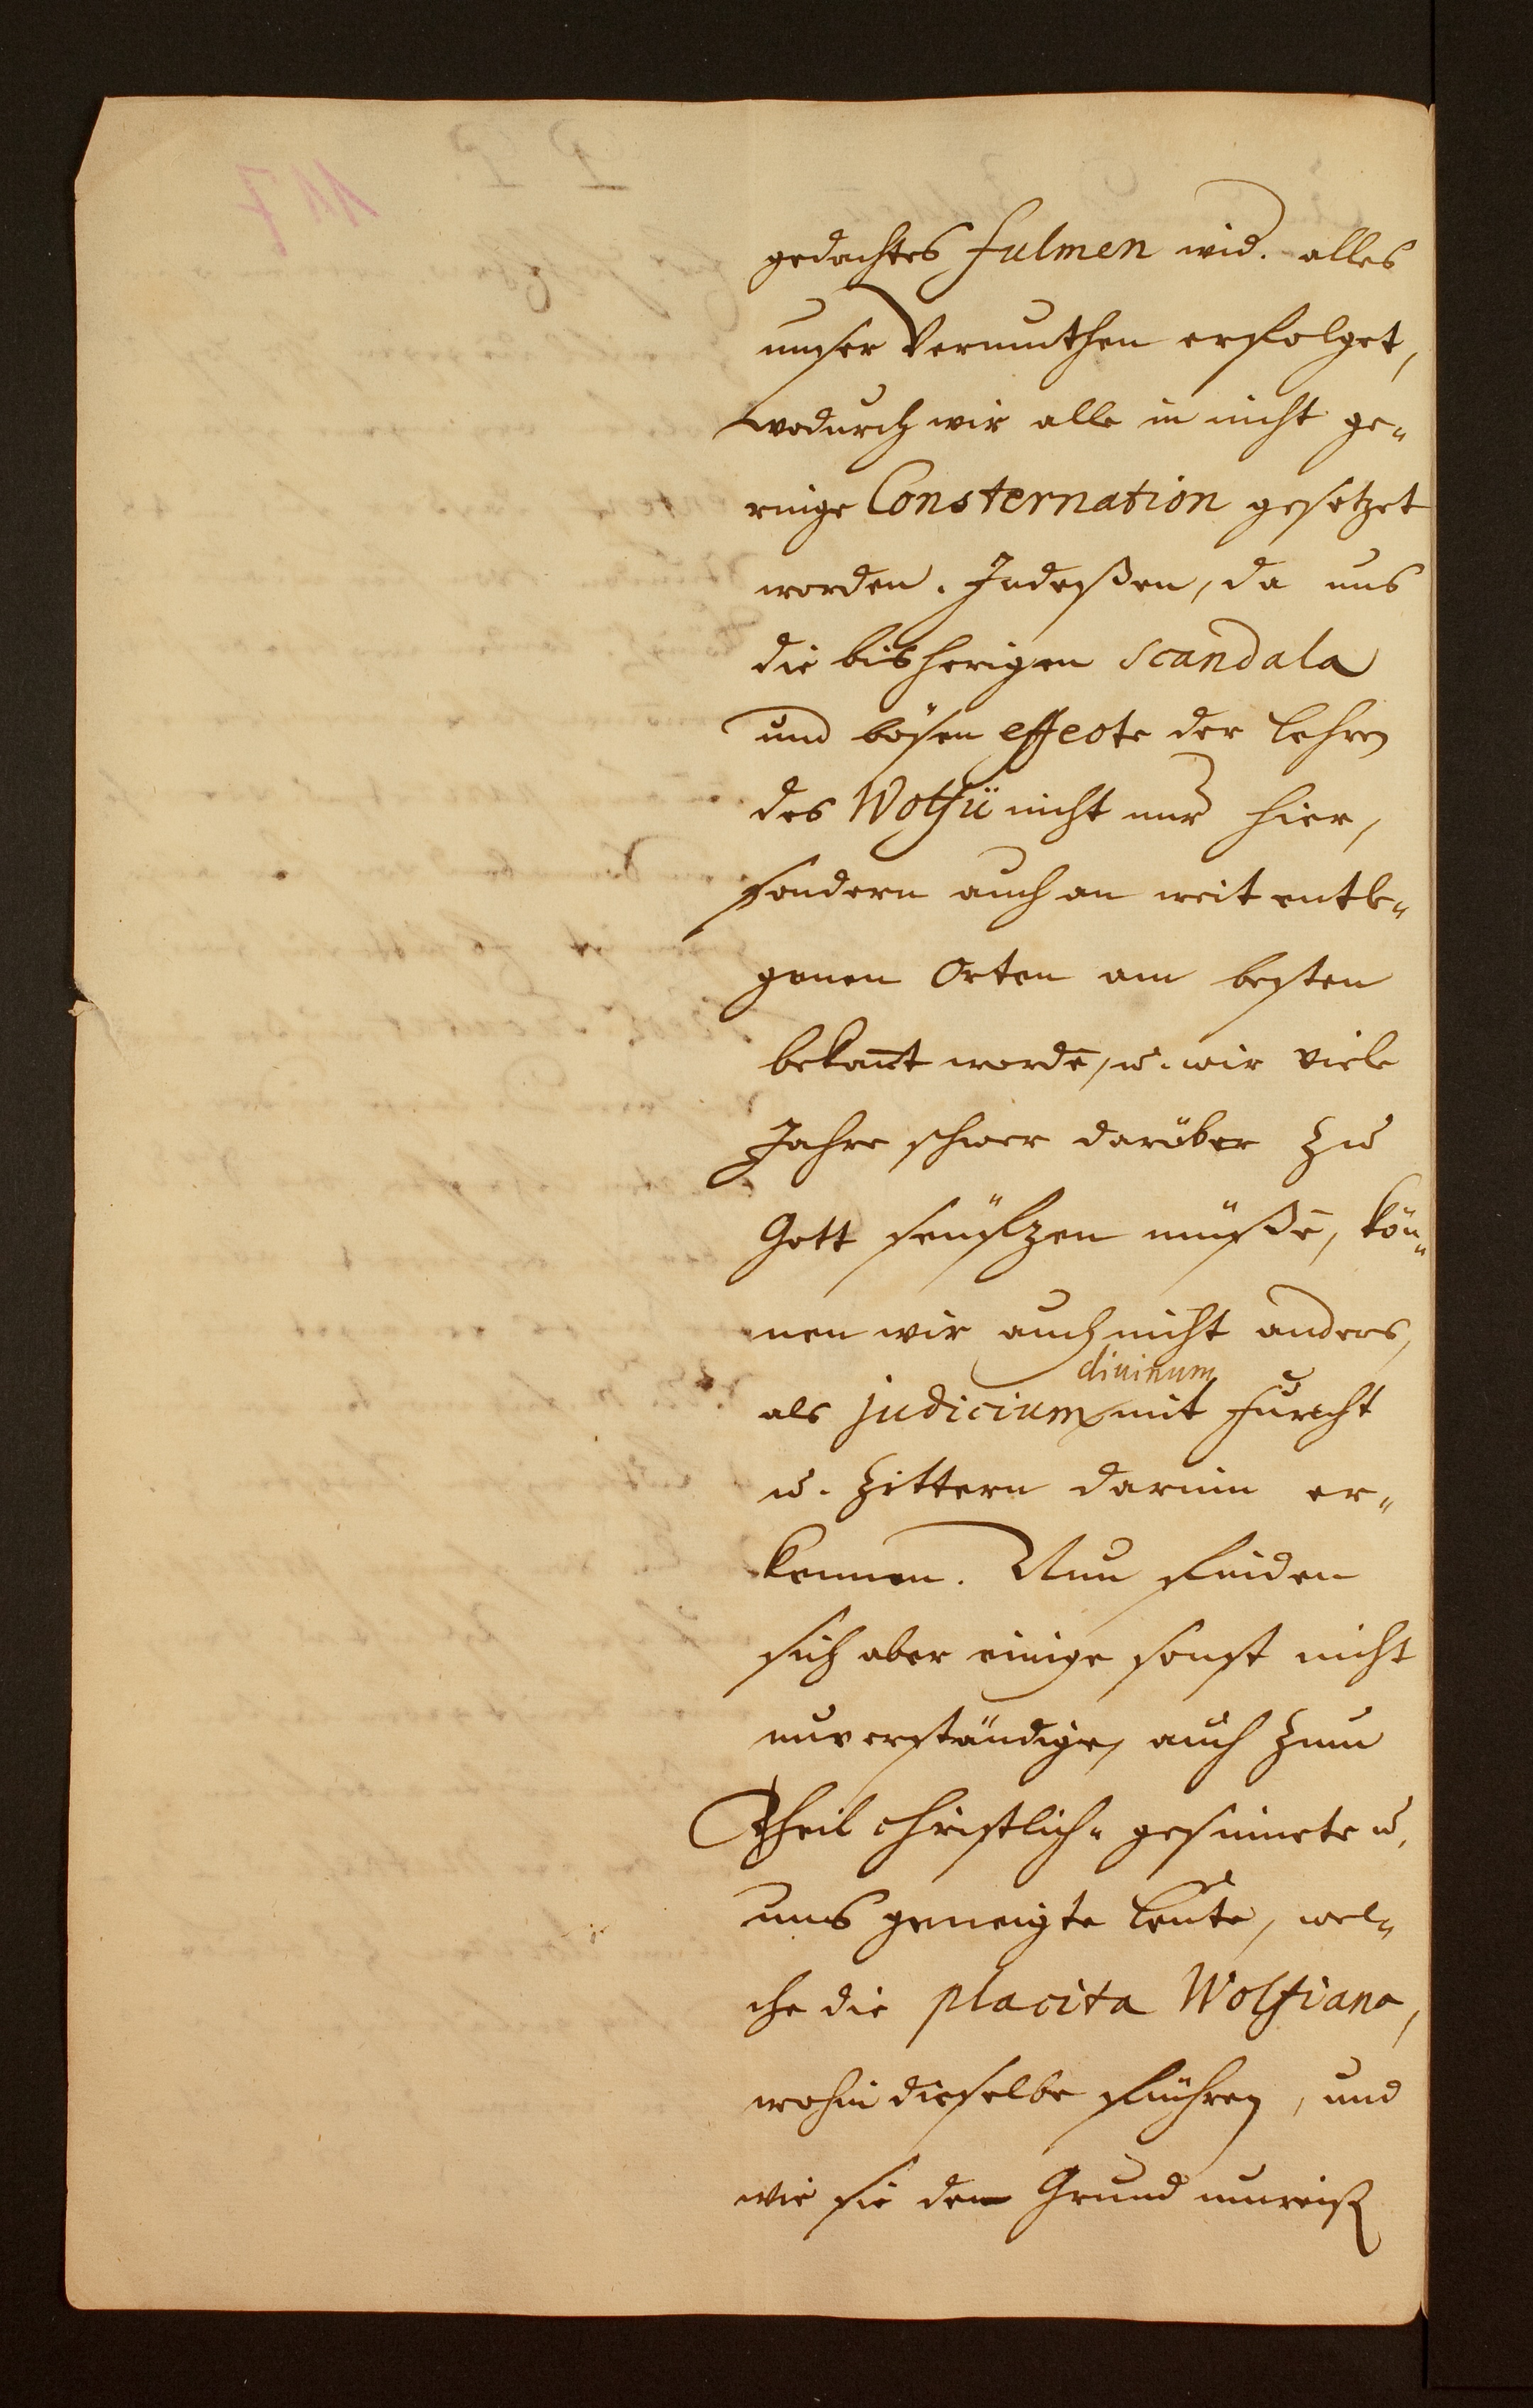 gedachtes fulmen wid. alles
unser Vermuthen erfolget,
wodurch wir alle in nicht ge-
ringe Consternation gesetzet
worden. Indeßen, da uns
die bißherigen scandala
und bösen effecte der Lehren
des Wolfii nicht nur hier,
sondern auch an weit entle-
genen Orten am besten
bekan̄t wordē, u. wir viele
Jahre schwer darüber zu
Gott seüfzen müßē, kön-
nen wir auch nicht anders,
als judicium divinum mit Furcht
u. Zittern darinn er-
kennen. Nun finden
sich aber einige sonst nicht
unverständige, auch zum
Theil christlich-gesinnete u.
uns geneigte Leute, wel-
che die placita Wolfiana,
wohin dieselbe führen, und
wie sie den Grund umreiß